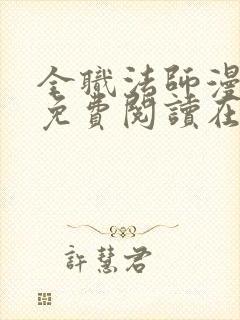 全職法師漫
免費閱讀在
許慧君